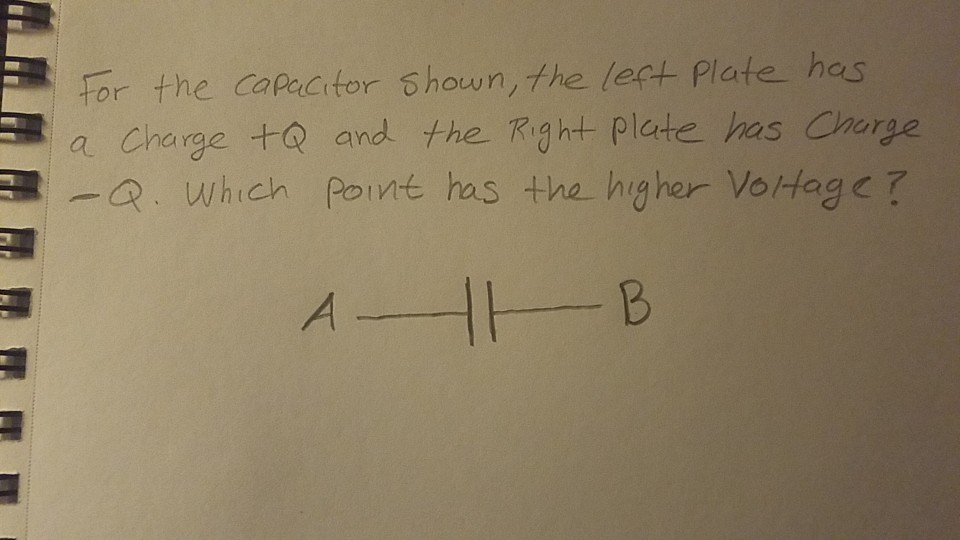 For the capacitor shown, the left plate has
a charge +Q and the Right plate has Charge
-Q. Which point has the higher Voltage?
A B